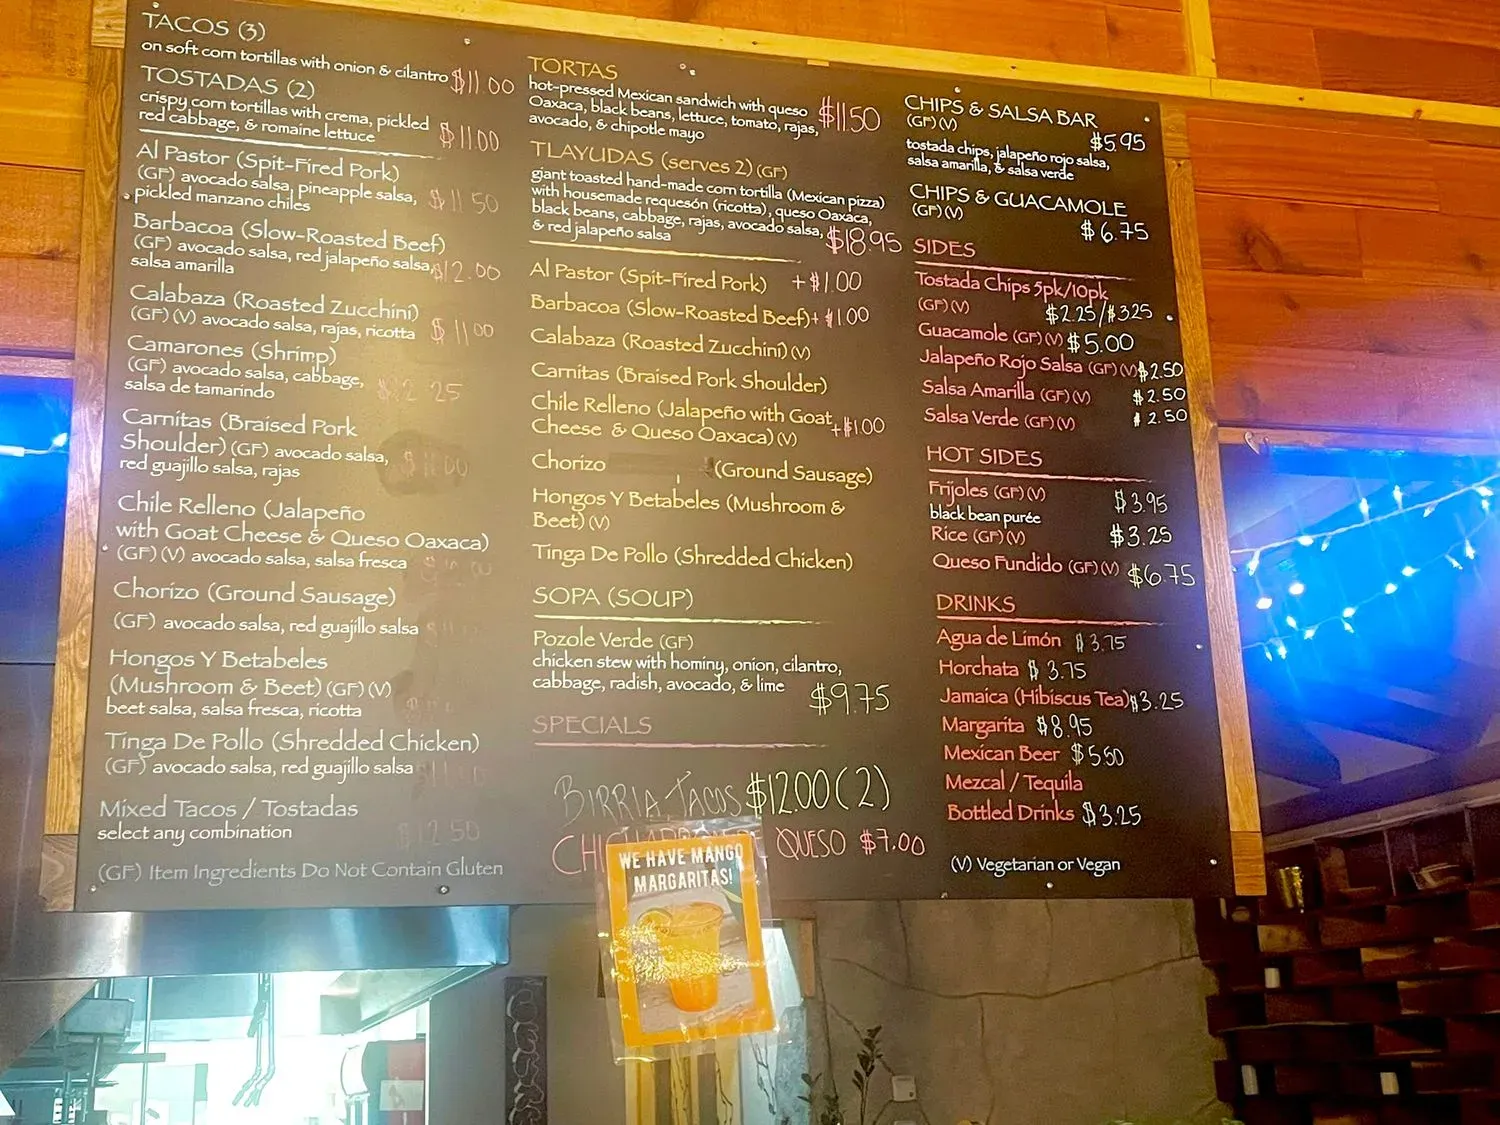 TACOS (3)
on soft corn tortillas with onion & cilantro $11.00
TOSTADAS (2)
crispy corn tortillas with crema, pickled
red cabbage, & romaine lettuce $11.00
Al Pastor (Spit-Fired Pork)
(GF) avocado salsa, pineapple salsa,
pickled manzano chiles $11 50
Barbacoa (Slow-Roasted Beef)
(GF) avocado salsa, red jalapeño salsa,
salsa amarilla $12.00
Calabaza (Roasted Zucchini)
(GF) (V) avocado salsa, rajas, ricotta $11 00
Camarones (Shrimp)
(GF) avocado salsa, cabbage,
salsa de tamarindo $12 25
Carnitas (Braised Pork
Shoulder) (GF) avocado salsa,
red guajillo salsa, rajas $11 00
Chile Relleno (Jalapeño
with Goat Cheese & Queso Oaxaca)
(GF) (V) avocado salsa, salsa fresca
Chorizo (Ground Sausage)
(GF) avocado salsa, red guajillo salsa
Hongos Y Betabeles
(Mushroom & Beet) (GF) (V)
beet salsa, salsa fresca, ricotta
Tinga De Pollo (Shredded Chicken)
(GF) avocado salsa, red guajillo salsa
Mixed Tacos / Tostadas
select any combination $12.50
(GF) Item Ingredients Do Not Contain Gluten
TORTAS
hot-pressed Mexican sandwich with queso
Oaxaca, black beans, lettuce, tomato, rajas,
avocado, & chipotle mayo $11.50
TLAYUDAS (serves 2) (GF)
giant toasted hand-made corn tortilla (Mexican pizza)
with housemade requesón (ricotta), queso Oaxaca,
black beans, cabbage, rajas, avocado salsa,
& red jalapeño salsa $18.95
Al Pastor (Spit-Fired Pork) +$1.00
Barbacoa (Slow-Roasted Beef) +$1.00
Calabaza (Roasted Zucchini) (V)
Carnitas (Braised Pork Shoulder)
Chile Relleno (Jalapeño with Goat
Cheese & Queso Oaxaca) (V) +$1.00
Chorizo (Ground Sausage)
Hongos Y Betabeles (Mushroom &
Beet) (V)
Tinga De Pollo (Shredded Chicken)
SOPA (SOUP)
Pozole Verde (GF)
chicken stew with hominy, onion, cilantro,
cabbage, radish, avocado, & lime $9.75
SPECIALS
BIRRIA TACOS $12.00 (2)
QUESO $7.00
WE HAVE MANGO
MARGARITAS!
CHIPS & SALSA BAR
(GF) (V) $5.95
tostada chips, jalapeño rojo salsa,
salsa amarilla, & salsa verde
CHIPS & GUACAMOLE
(GF) (V) $6.75
SIDES
Tostada Chips 5pk/10pk
(GF) (V) $2.25/$3.25
Guacamole (GF) (V) $5.00
Jalapeño Rojo Salsa (GF) (V) $2.50
Salsa Amarilla (GF) (V) $2.50
Salsa Verde (GF) (V) $2.50
HOT SIDES
Frijoles (GF) (V) $3.95
black bean purée
Rice (GF) (V) $3.25
Queso Fundido (GF) (V) $6.75
DRINKS
Agua de Limón $3.75
Horchata $3.75
Jamaica (Hibiscus Tea) $3.25
Margarita $8.95
Mexican Beer $5.50
Mezcal / Tequila
Bottled Drinks $3.25
(V) Vegetarian or Vegan